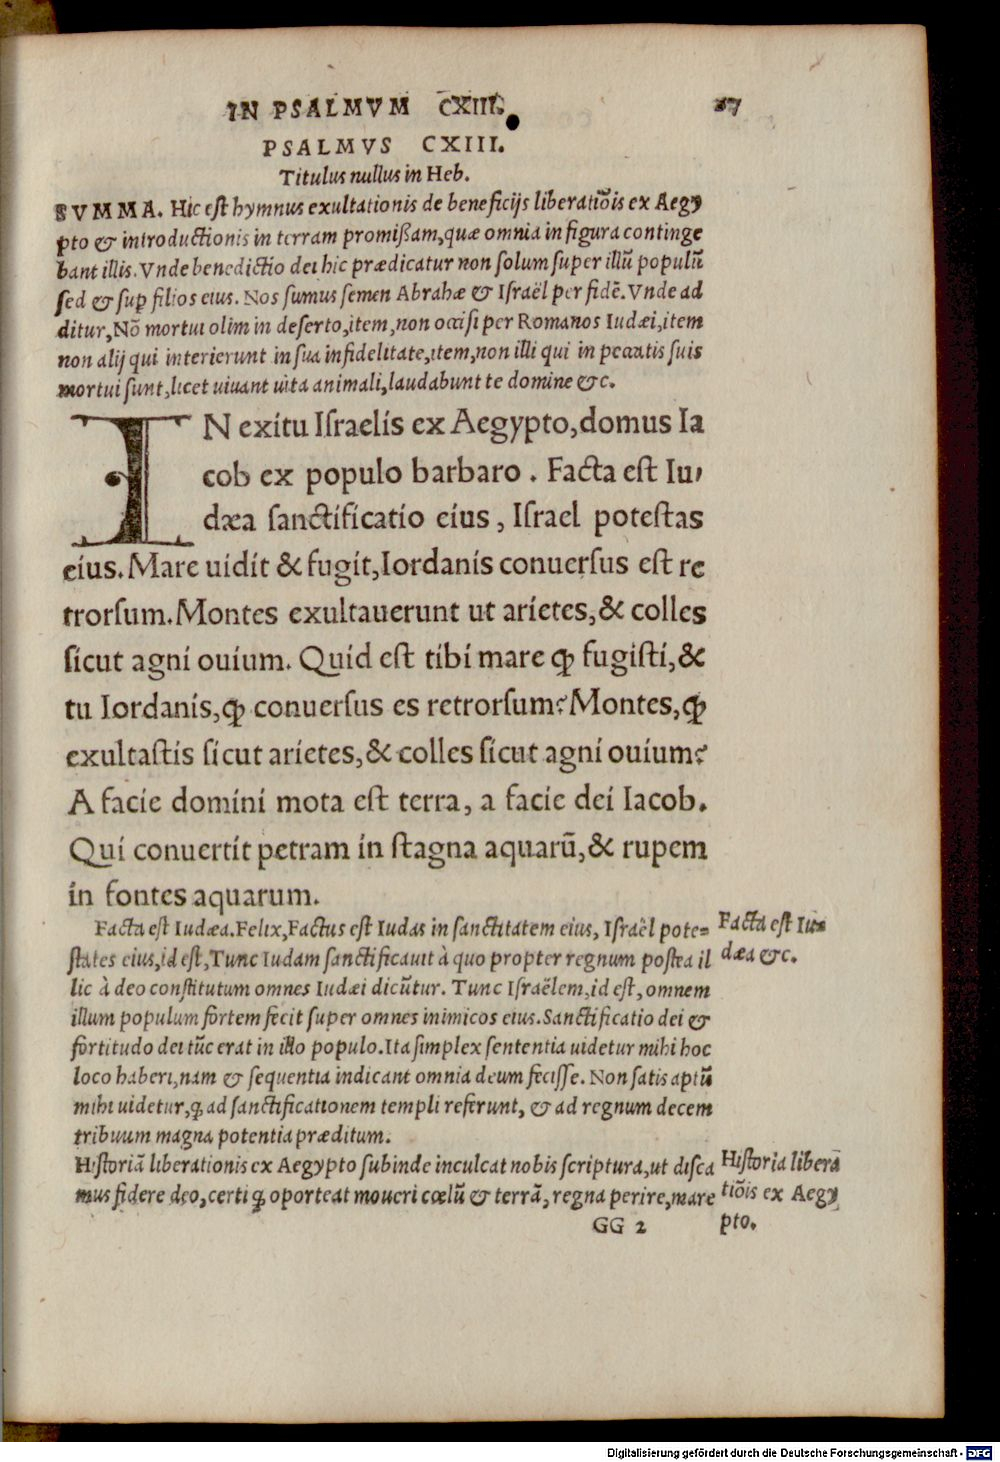 IN PSALMVM CXIII. 27
PSALMVS CXIII.
Titulus nullus in Heb.
SVMMA. Hic eſt hymnus exultationis de beneficijs liberatiōis ex Aegy
pto & introductionis in terram promiſſam, quæ omnia in figura continge
bant illis. Vnde benedictio dei hic prædicatur non ſolum ſuper illū populū
ſed & ſuꝑ filios eius. Nos ſumus ſemen Abrahæ & Iſraël per fidē. Vnde ad
ditur, Nō mortui olim in deſerto, item, non occiſi per Romanos Iudæi, item
non alij qui interierunt in ſua infidelitate, item, non illi qui in peccatis ſuis
mortui ſunt, licet uiuant uita animali, laudabunt te domine &c.
IN exitu Iſraelis ex Aegypto, domus Ia
cob ex populo barbaro. Facta eſt Iu-
dæa ſanctificatio eius, Iſrael poteſtas
eius. Mare uidit & fugit, Iordanis conuerſus eſt re
trorſum. Montes exultauerunt ut arietes, & colles
ſicut agni ouium. Quid eſt tibi mare ꝙ fugiſti, &
tu Iordanis, ꝙ conuerſus es retrorſum? Montes, ꝙ
exultaſtis ſicut arietes, & colles ſicut agni ouium?
A facie domini mota eſt terra, a facie dei Iacob.
Qui conuertit petram in ſtagna aquarū, & rupem
in fontes aquarum.
Facta eſt Iudæa. Felix, Factus eſt Iudas in ſanctitatem eius, Iſraël pote=
ſtates eius, id eſt, Tunc Iudam ſanctificauit à quo propter regnum poſtea il
lic à deo conſtitutum omnes Iudæi dicūtur. Tunc Iſraëlem, id eſt, omnem
illum populum fortem fecit ſuper omnes inimicos eius. Sanctificatio dei &
fortitudo dei tūc erat in illo populo. Ita ſimplex ſententia uidetur mihi hoc
loco haberi, nam & ſequentia indicant omnia deum feciſſe. Non ſatis aptū
mihi uidetur, ꝙ ad ſanctificationem templi referunt, & ad regnum decem
tribuum magna potentia præditum.
Facta eſt Iu=
dæa &c.
Hiſtoriā liberationis ex Aegypto ſubinde inculcat nobis ſcriptura, ut diſca
mus fidere deo, certi ꝙ oporteat moueri cœlū & terrā, regna perire, mare
Hiſtoria liberа
tiōis ex Aegy
pto.
GG 2
Digitalisierung gefördert durch die Deutsche Forschungsgemeinschaft - DFG